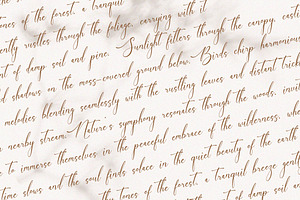 ones of the forest, a tranquil
ently rustles through the foliage, carrying with it
nt of damp soil and pine. Sunlight filters through the canopy, casti
d shadows on the moss-covered ground below. Birds chirp harmoniou
melodies blending seamlessly with the rustling leaves and distant trickl
nearby stream. Nature's symphony resonates through the woods, invit
to immerse themselves in the peaceful embrace of the wilderness, whe
time slows and the soul finds solace in the quiet beauty of the earth
the tones of the forest, a tranquil breeze gentl
of damp soil an